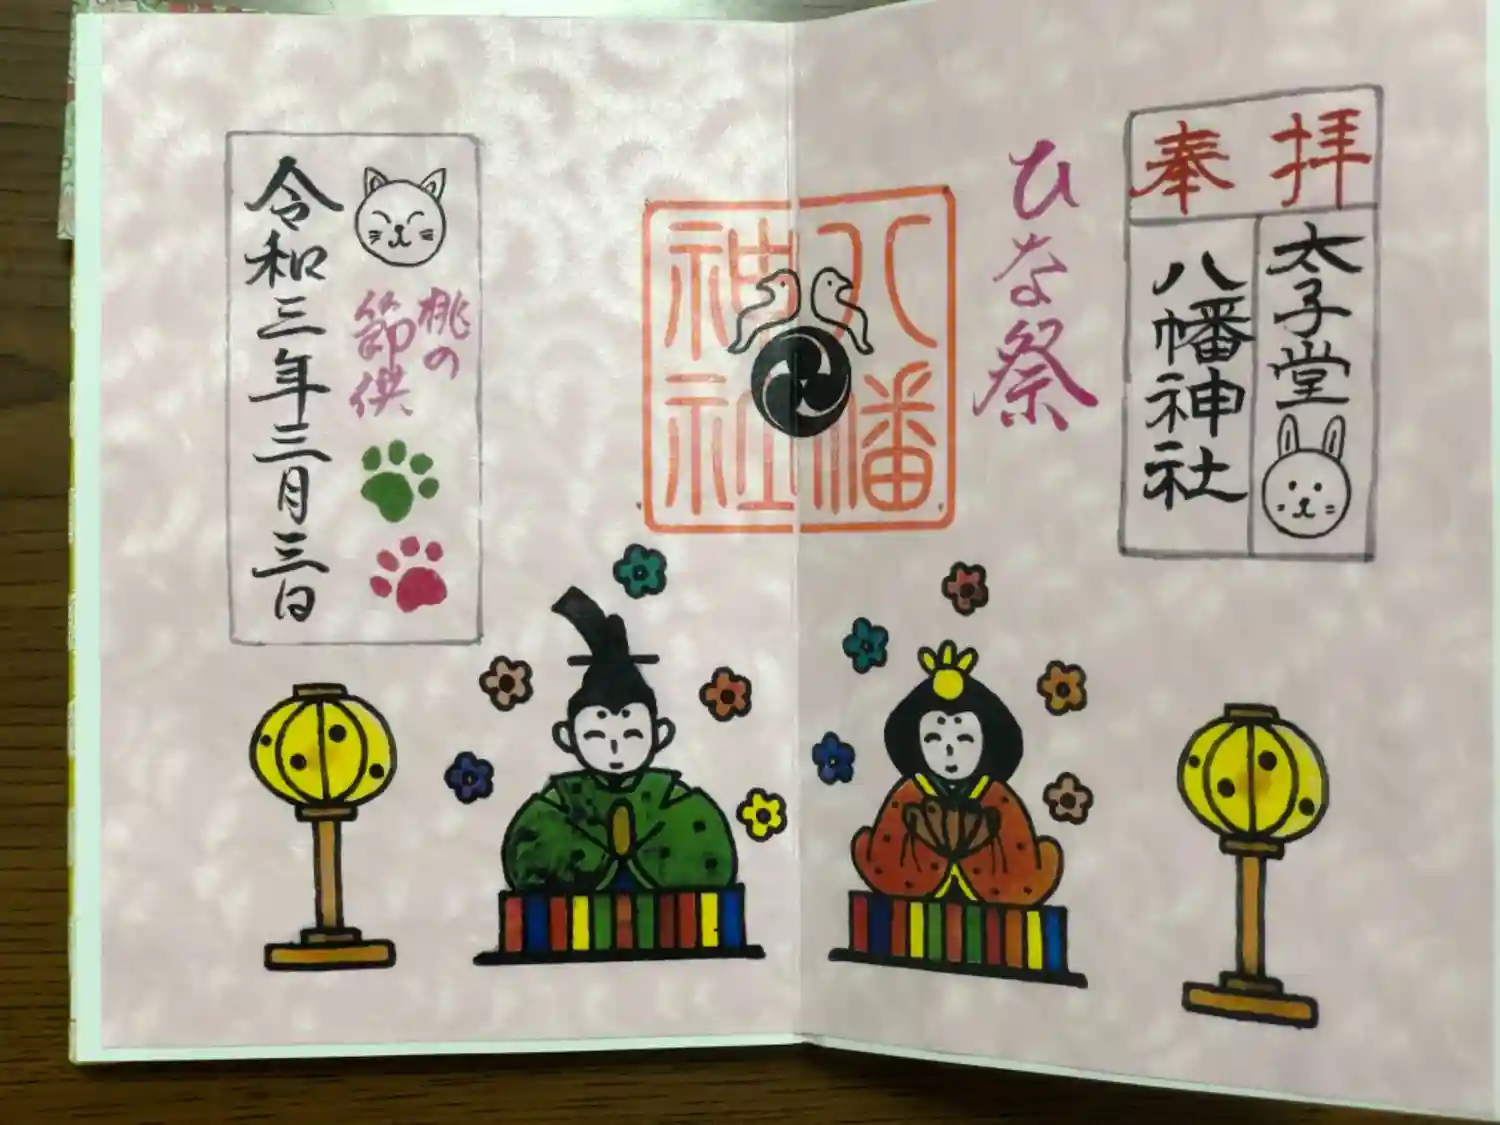 奉拝
太子堂
八幡神社
ひな祭
八幡神社
桃の
節供
令和三年三月三日